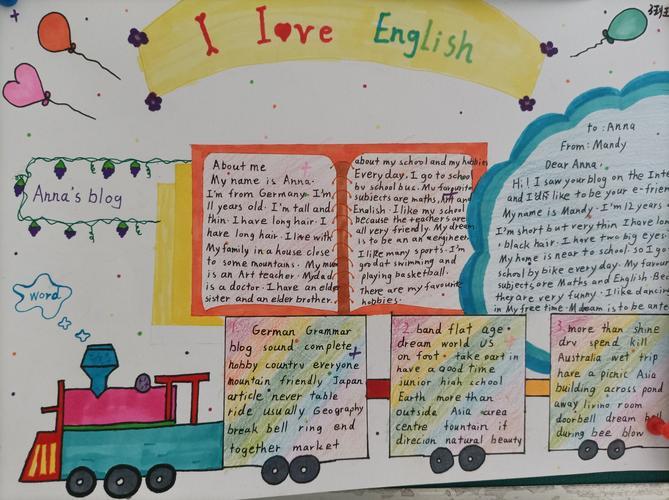 I Love English
Anna's blog
word
About me
My name is Anna.
I'm from Germany. I'm
11 years old. I'm tall and
thin. I have long hair. I
have long hair. I live with
My family in a house close
to some mountains. My mum
is an Art teacher. My dad
is a doctor. I have an elder
sister and an elder brother.
about my school and my hobbies
Every day. I go to school
by school bus. My favourite
subjects are maths, Art and
English. I like my school
because the teachers are
all very friendly. My dream
is to be an an engineer.
I like many sports. I'm
good at swimming and
playing basketball.
there are my favourite
hobbies.
to: Anna
From: Mandy
Dear Anna.
Hi! I saw your blog on the Inte
and I'd like to be your e-frien
My name is Mandy. I'm 12 years
I'm short but very thin I have lon
black hair. I have two big eyes.
My home is near to school. so I go
school by bike every day. My favour
subjects are Maths and English. Bec
they are very funny. I like dancing
in My free time. M dream is to be
1. German Grammar
blog sound complete
hobby country everyone
mountain friendly Japan
article never table
ride usually Geography
break bell ring end
together market
2. band flat age
dream world US
on foot take part in
have a good time
junior high school
Earth more than
outside Asia area
centre fountain if
direcion natural beauty
3. more than shine
dry spend kill
Australia wet trip
have a picnic Asia
building across pond
away living room
doorbell dream bell
during bee blow